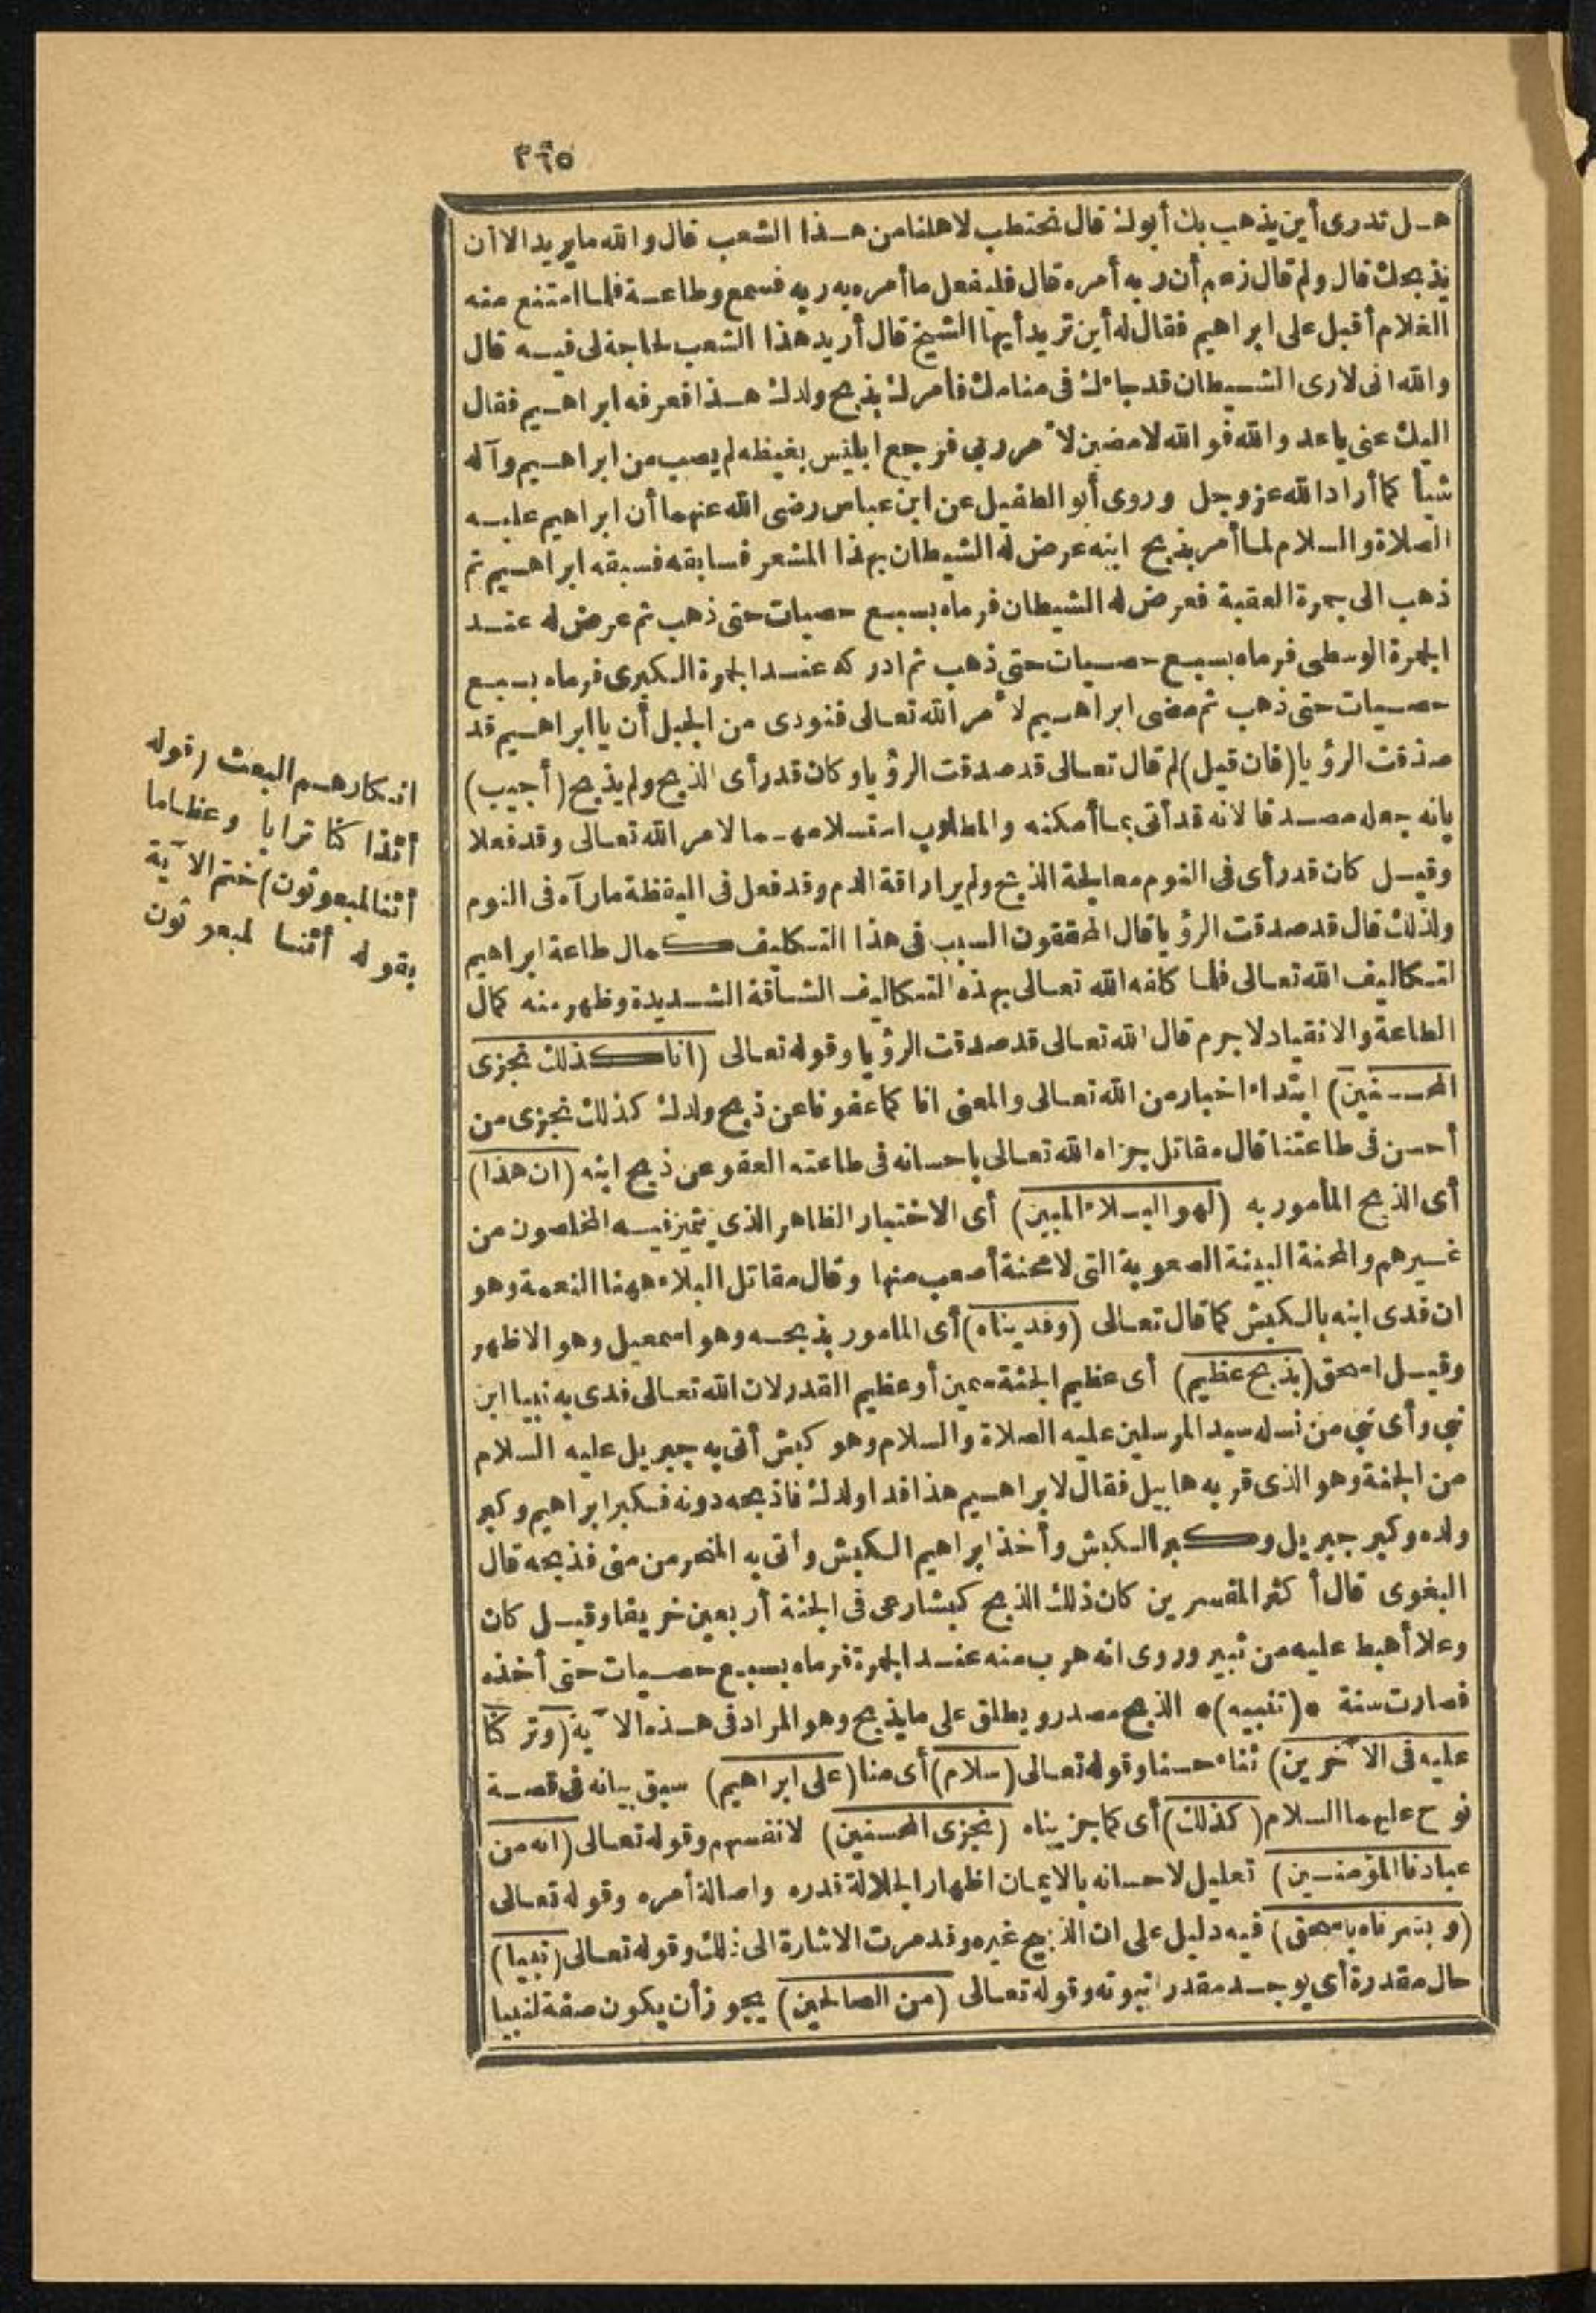 ٣٦٥
هل تدرى أين يذهب بك أبوك قال نحتطب لاهلنا من هذا الشعب قال والله ما يريد الا أن
يذبحك قال ولم قال زعم أن ربه أمره قال فليفعل ما أمره به ربه فسمع وطاعة فلما امتنع منه
الغلام أقبل على ابراهيم فقال له أين تريد أيها الشيخ قال أريد هذا الشعب لحاجة لى فيه قال
والله انى لارى الشيطان قد جاءك فى منامك فأمرك بذبح ولدك هذا فعرفه ابراهيم فقال
اليك عنى يا عدو الله فوالله لامضين لأمر ربى فرجع ابليس بغيظه لم يصب من ابراهيم وآله
شيأ كما أراد الله عز وجل وروى أبو الطفيل عن ابن عباس رضى الله عنهما أن ابراهيم عليه
الصلاة والسلام لما أمر بذبح ابنه عرض له الشيطان بهذا المشعر فسابقه فسبقه ابراهيم ثم
ذهب الى جمرة العقبة فعرض له الشيطان فرماه بسبع حصيات حتى ذهب ثم عرض له عند
الجمرة الوسطى فرماه بسبع حصيات حتى ذهب ثم ادركه عند الجمرة الكبرى فرماه بسبع
حصيات حتى ذهب ثم مضى ابراهيم لأمر الله تعالى فنودى من الجبل أن يا ابراهيم قد
صدقت الرؤيا (فان قيل) لم قال تعالى قد صدقت الرؤيا وكان قد رأى الذبح ولم يذبح (أجيب)
بانه جعله مصدقا لانه قد أتى بما أمكنه والمطلوب استسلامهما لامر الله تعالى وقد فعلا
وقيل كان قد رأى فى النوم معالجة الذبح ولم ير اراقة الدم وقد فعل فى اليقظة ما رآه فى النوم
ولذلك قال قد صدقت الرؤيا قال المحققون السبب فى هذا التكليف كمال طاعة ابراهيم
لتكاليف الله تعالى فلما كلفه الله تعالى بهذه التكاليف الشاقة الشديدة وظهر منه كمال
الطاعة والانقياد لاجرم قال الله تعالى قد صدقت الرؤيا وقوله تعالى (انا كذلك نجزى
المحسنين) ابتداء اخبار من الله تعالى والمعنى انا كما عفونا عن ذبح ولدك كذلك نجزى من
أحسن فى طاعتنا قال مقاتل جزاه الله تعالى باحسانه فى طاعته العفو عن ذبح ابنه (ان هذا)
أى الذبح المأمور به (لهو البلاء المبين) أى الاختبار الظاهر الذى يتميز فيه المخلصون من
غيرهم والمحنة البينة الصعوبة التى لا محنة أصعب منها وقال مقاتل البلاء ههنا النعمة وهو
ان فدى ابنه بالكبش كما قال تعالى (وفديناه) أى المامور بذبحه وهو اسمعيل وهو الاظهر
وقيل اسحق (بذبح عظيم) أى عظيم الجثة سمين أو عظيم القدر لان الله تعالى فدى به نبيا ابن
نبى وأى نبى من نسله سيد المرسلين عليه الصلاة والسلام وهو كبش أتى به جبريل عليه السلام
من الجنة وهو الذى قربه هابيل فقال لابراهيم هذا فداء ولدك فاذبحه دونه فكبر ابراهيم وكبر
ولده وكبر جبريل وكبر الكبش وأخذ ابراهيم الكبش وأتى به المنحر من منى فذبحه قال
البغوى قال أكثر المفسرين كان ذلك الذبح كبشا رعى فى الجنة أربعين خريفا وقيل كان
وعلا أهبط عليه من ثبير وروى انه هرب منه عند الجمرة فرماه بسبع حصيات حتى أخذه
فصارت سنة * (تنبيه) * الذبح مصدر ويطلق على ما يذبح وهو المراد فى هذه الآية (وتركنا
عليه فى الآخرين) ثناء حسنا وقوله تعالى (سلام) أى منا (على ابراهيم) سبق بيانه فى قصة
نوح عليهما السلام (كذلك) أى كما جزيناه (نجزى المحسنين) لانفسهم وقوله تعالى (انه من
عبادنا المؤمنين) تعليل لاحسانه بالايمان اظهار الجلالة قدره واصالة أمره وقوله تعالى
(وبشرناه باسحق) فيه دليل على ان الذبيح غيره وقد مرت الاشارة الى ذلك وقوله تعالى (نبيا)
حال مقدرة أى يوجد مقدرا نبوته وقوله تعالى (من الصالحين) يجوز أن يكون صفة لنبيا
انكارهم البعث (قوله
أئذا كنا ترابا وعظاما
أئنا لمبعوثون) ختم الآية
بقوله أئنا لمبعوثون